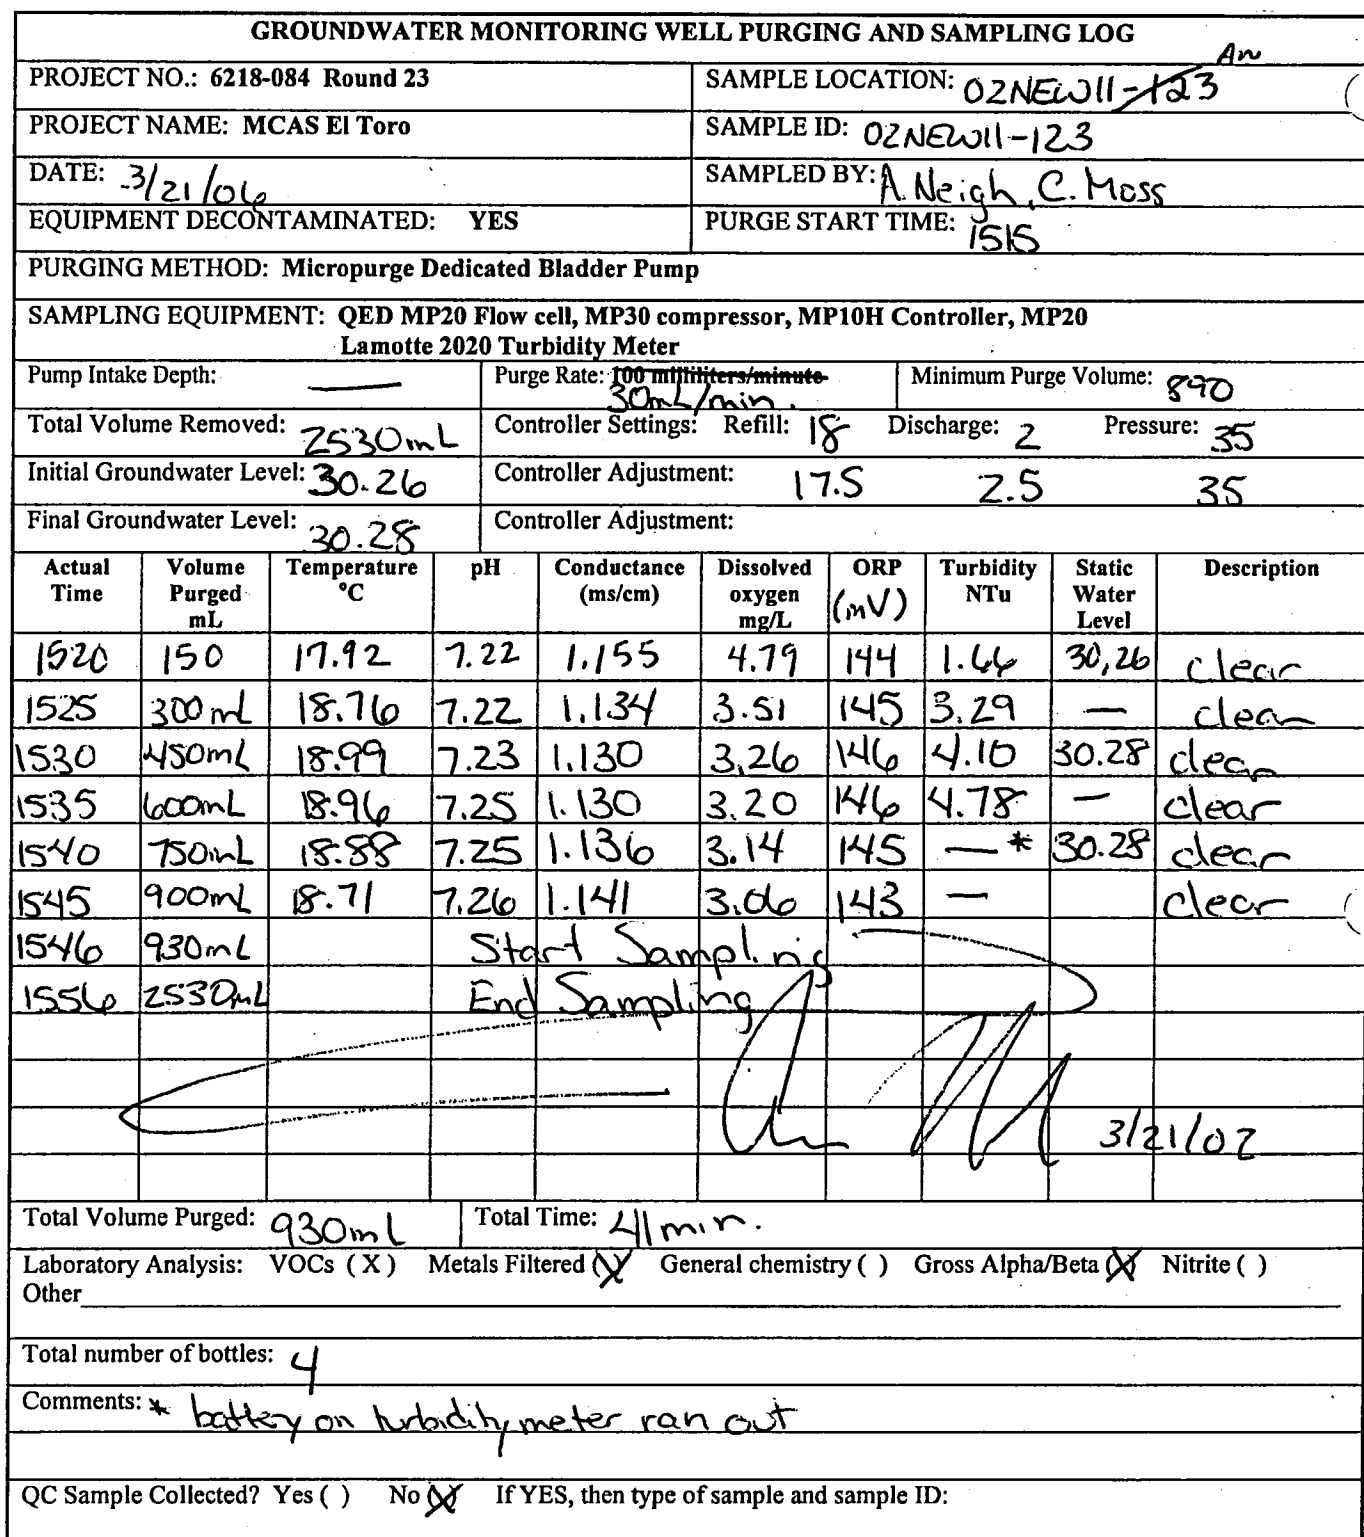 GROUNDWATER MONITORING WELL PURGING AND SAMPLING LOG
PROJECT NO.: 6218-084 Round 23 SAMPLE LOCATION: 02NEW11-123 AN
PROJECT NAME: MCAS El Toro SAMPLE ID: 02NEW11-123
DATE: 3/21/06 SAMPLED BY: A. Neigh, C. Moss
EQUIPMENT DECONTAMINATED: YES PURGE START TIME: 1515
PURGING METHOD: Micropurge Dedicated Bladder Pump
SAMPLING EQUIPMENT: QED MP20 Flow cell, MP30 compressor, MP10H Controller, MP20
Lamotte 2020 Turbidity Meter
Pump Intake Depth: — Purge Rate: 100 milliliters/minute 30mL/min. Minimum Purge Volume: 890
Total Volume Removed: 2530mL Controller Settings: Refill: 18 Discharge: 2 Pressure: 35
Initial Groundwater Level: 30.26 Controller Adjustment: 17.5 2.5 35
Final Groundwater Level: 30.28 Controller Adjustment:
Actual Time Volume Purged mL Temperature °C pH Conductance (ms/cm) Dissolved oxygen mg/L ORP (mV) Turbidity NTu Static Water Level Description
1520 150 17.92 7.22 1.155 4.79 144 1.66 30,26 clear
1525 300mL 18.76 7.22 1.134 3.51 145 3.29 — clear
1530 450mL 18.99 7.23 1.130 3.26 146 4.10 30.28 clear
1535 600mL 18.96 7.25 1.130 3.20 146 4.78 — clear
1540 750mL 18.88 7.25 1.136 3.14 145 —* 30.28 clear
1545 900mL 18.71 7.26 1.141 3.06 143 — clear
1546 930mL Start Sampling
1556 2530mL End Sampling
3/21/02
Total Volume Purged: 930mL Total Time: 41min.
Laboratory Analysis: VOCs (X) Metals Filtered (X) General chemistry ( ) Gross Alpha/Beta (X) Nitrite ( )
Other
Total number of bottles: 4
Comments: * battery on turbidity meter ran out
QC Sample Collected? Yes ( ) No (X) If YES, then type of sample and sample ID: